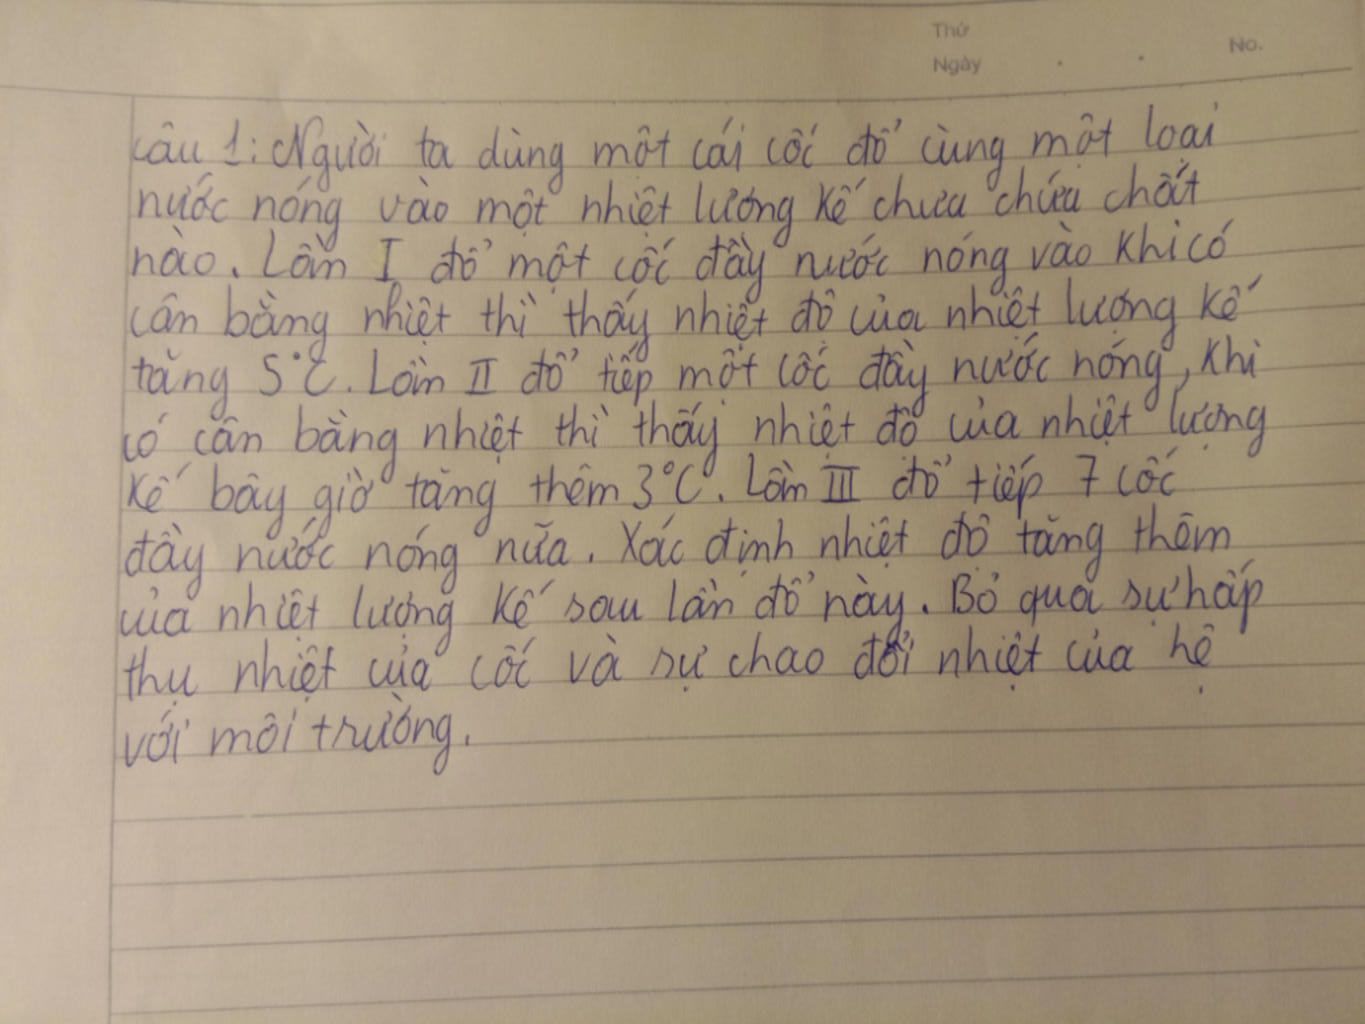 Thứ
Ngày
No.
Câu 1: Người ta dùng một cái cốc đổ cùng một loại
nước nóng vào một nhiệt lượng kế chưa chứa chất
nào. Lần I đổ một cốc đầy nước nóng vào khi có
cân bằng nhiệt thì thấy nhiệt độ của nhiệt lượng kế
tăng 5°C. Lần II đổ tiếp một cốc đầy nước nóng, khi
có cân bằng nhiệt thì thấy nhiệt độ của nhiệt lượng
kế bây giờ tăng thêm 3°C. Lần III đổ tiếp 7 cốc
đầy nước nóng nữa. Xác định nhiệt độ tăng thêm
của nhiệt lượng kế sau lần đổ này. Bỏ qua sự hấp
thụ nhiệt của cốc và sự chao đổi nhiệt của hệ
với môi trường.